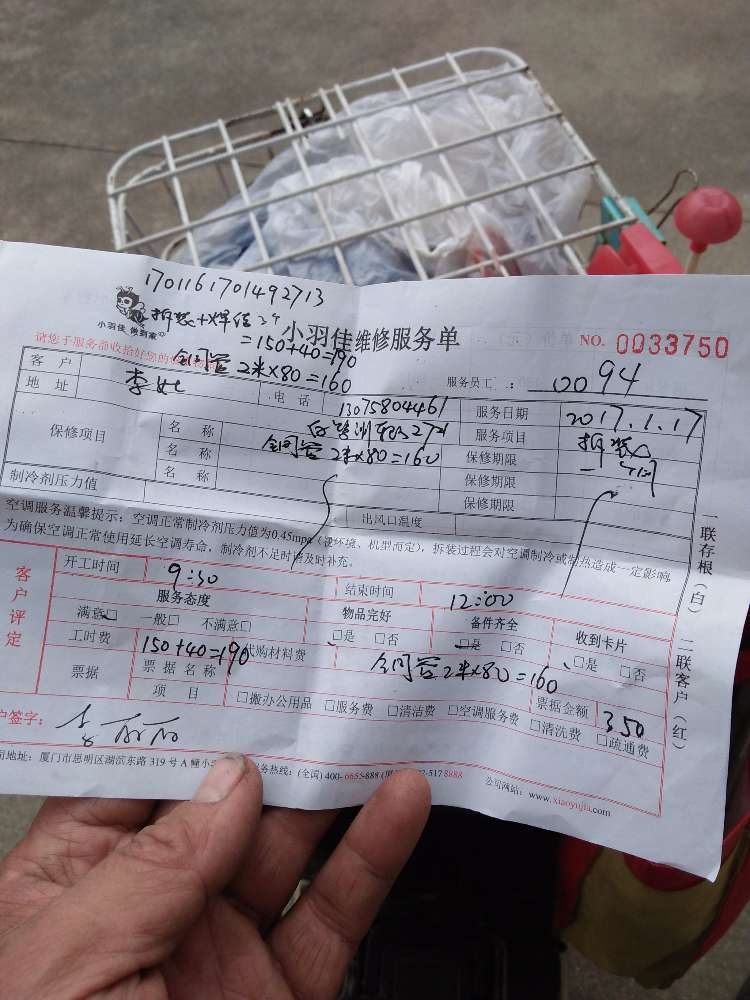 1701161701492713
小羽佳 做到家
拆装+焊接
=150+40=190
小羽佳维修服务单
NO. 0033750
全铜管 2米×80=160
服务员工: 0094
客户
地址
电话
13075804461
服务日期
2017.1.17
服务项目
拆装
保修项目
名 称
全铜管 2米×80=160
保修期限
名 称
保修期限
名 称
保修期限
制冷剂压力值
出风口温度
空调服务温馨提示:空调正常制冷剂压力值为0.45mpa(视环境、机型而定),拆装过程会对空调制冷或制热造成一定影响,
为确保空调正常使用延长空调寿命,制冷剂不足时请及时补充。
客户评定
开工时间
9:30
结束时间
12:00
服务态度
物品完好
备件齐全
收到卡片
满意□ 一般□ 不满意□
□是 □否
□是 □否
□是 □否
工时费
150+40=190
代购材料费
全铜管 2米×80=160
票据
票据名称
票据金额
350
项 目
□搬办公用品 □服务费 □清洁费 □空调服务费 □清洗费 □疏通费
户签字:
司地址:厦门市思明区湖滨东路319号A幢小
务热线:(全国)400-6655-888
-5178888
公司网站:www.xiaoyujia.com
一联存根(白) 二联客户(红)